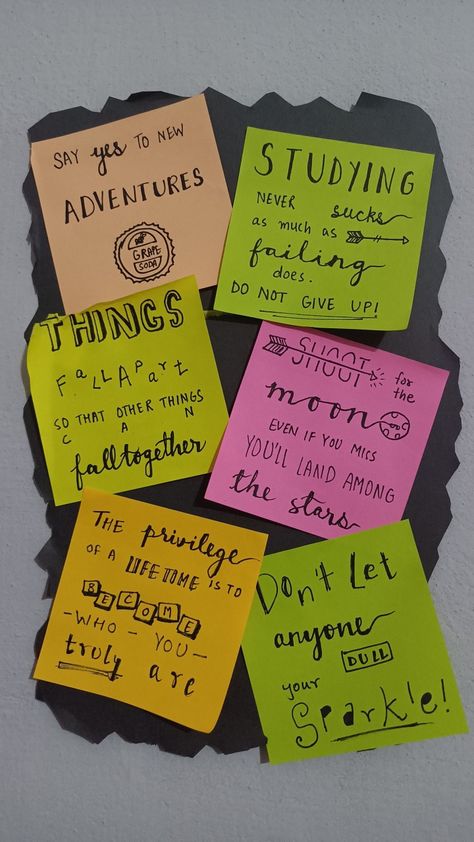 SAY yes TO NEW
ADVENTURES
GRAPE
SODA
STUDYING
NEVER sucks
as much as
failing
does.
DO NOT GIVE UP!
THINGS
FaLLAPart
SO THAT OTHER THINGS
C A N
falltogether
SHOOT for
the
moon
EVEN IF YOU MISS
YOU'LL LAND AMONG
the stars
THE privilege
OF A LIFETIME IS TO
BECOME
-WHO - YOU-
truly are
Don't Let
anyone
DULL
your
Sparkle!